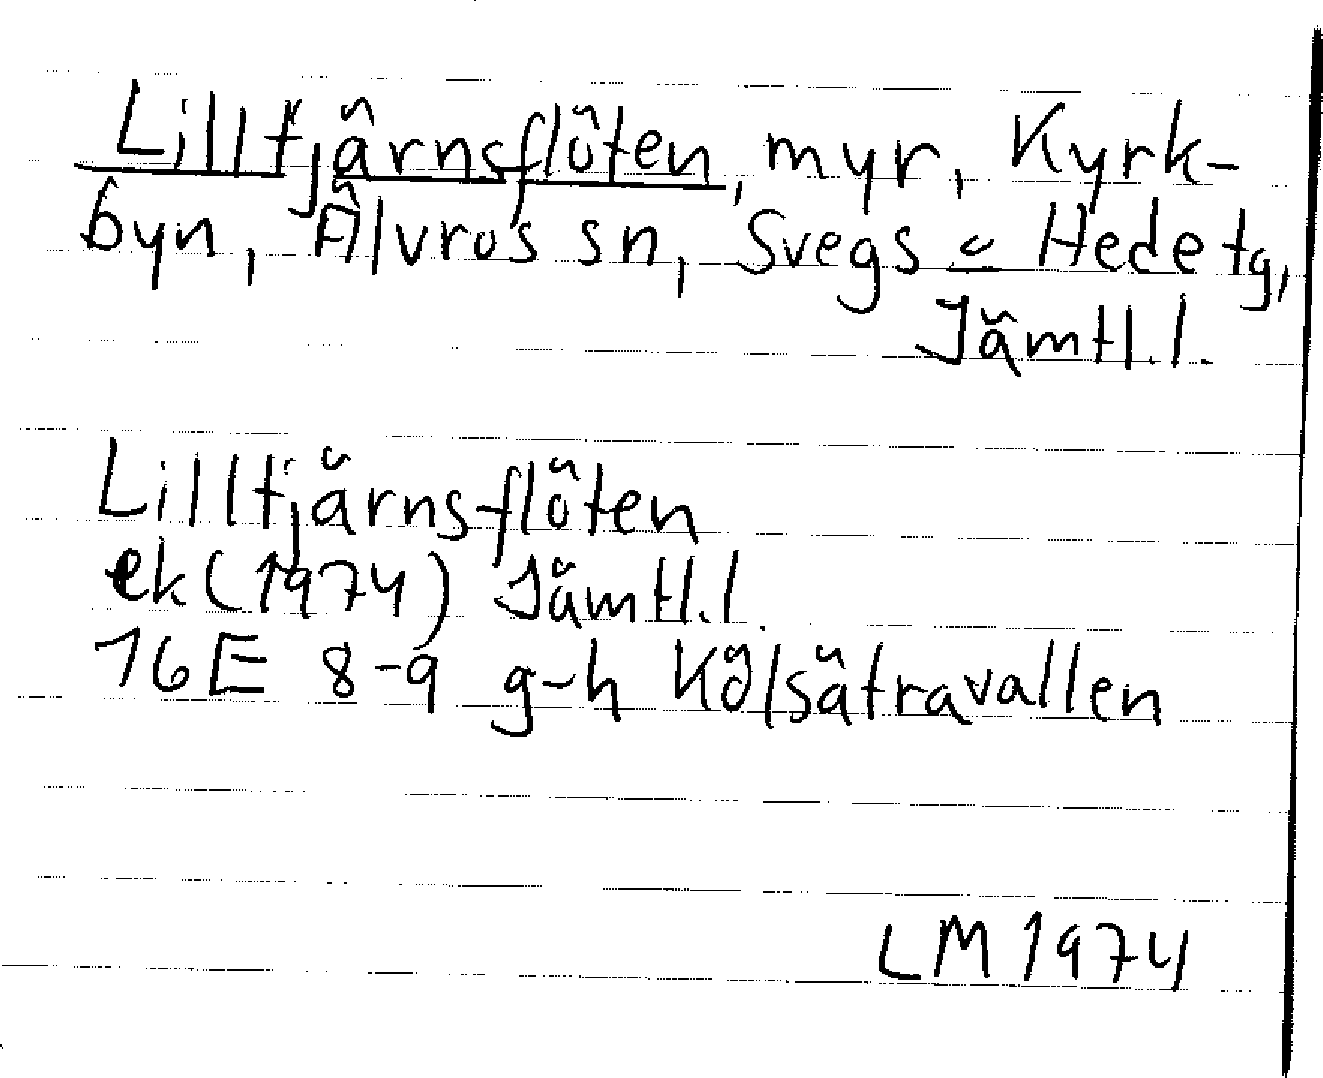 Lilltjärnsflöten, myr, Kyrk-
byn, Älvros sn, Svegs o Hede tg,
Jämtl.l.
Lilltjärnsflöten
ek (1974) Jämtl.l.
16E 8-9 g-h Kölsätravallen
LM 1974